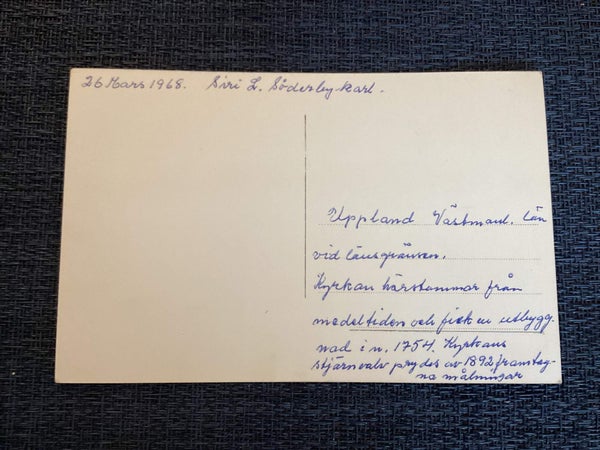 26 Mars 1968. Siri L. Söderbykarl.
Uppland Västmanl. län
vid länsgränsen.
Kyrkan härstammar från
medeltiden och fick en utbygg-
nad i n. 1754. Kyrkans
stjärnvalv prydes av 1892 framtag-
na målningar